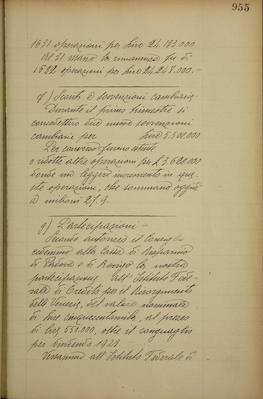 955
1631 operazioni per lire 24.183.000
Al 31 marzo la rimanenza fu di
1722 operazioni per lire 24.248.000.-
f) Sconti e sovvenzioni cambiarie
Durante il primo trimestre si
concedettero due nuove sovvenzioni
cambiarie per lire 5.500.000
Per converso furono
e ridotte altre operazioni per £ 3.620.000
leggero incremento in que
ste operazioni, che sommano oggi
a milioni 27.9.
g) Partecipazioni -
Quando autorizzò il Consiglio
alla Cassa di Risparmio
di e di Rovigo la nostra
partecipazione all'Istituto Fede
rale di Credito per il Risorgimento
delle Venezie, del valore nominale
di lire cinquecentomila, al prezzo
di lire 551.000, oltre il conguaglio
per dividendo 1921.
all'Istituto Federale di